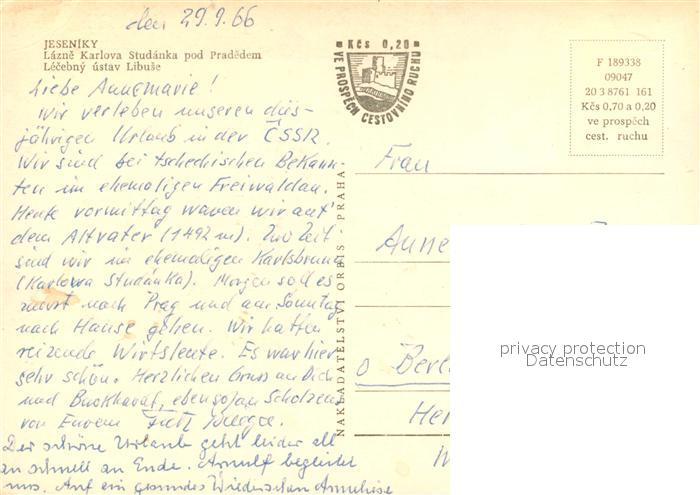 den 29.9.66
JESENÍKY
Lázně Karlova Studánka pod Pradědem
Léčebný ústav Libuše
Kčs 0,20
VE PROSPĚCH CESTOVNÍHO RUCHU
F 189338
09047
20 3 8761 161
Kčs 0,70 a 0,20
ve prospěch
cest. ruchu
NAKLADATELSTVÍ ORBIS PRAHA
Liebe Annemarie!
Wir verleben unseren dies-
jährigen Urlaub in der ČSSR.
Wir sind bei tschechischen Bekann-
ten im ehemaligen Freiwaldau.
Heute vormittag waren wir auf
dem Altvater (1492 m). Zur Zeit
sind wir im ehemaligen Karlsbrunn
(Karlowa Studánka). Morgen soll es
zuerst nach Prag und am Sonntag
nach Hause gehen. Wir hatten
reizende Wirtsleute. Es war hier
sehr schön. Herzlichen Gruss an Dich
und Burkhardt, ebenso an Scholzens
von Eurem Fritz
Der schöne Urlaub geht leider all
zu schnell zu Ende. Arnulf begleitet
uns. Auf ein gesundes Wiedersehen Anneliese
Frau
Anne
o Berl
He
privacy protection
Datenschutz